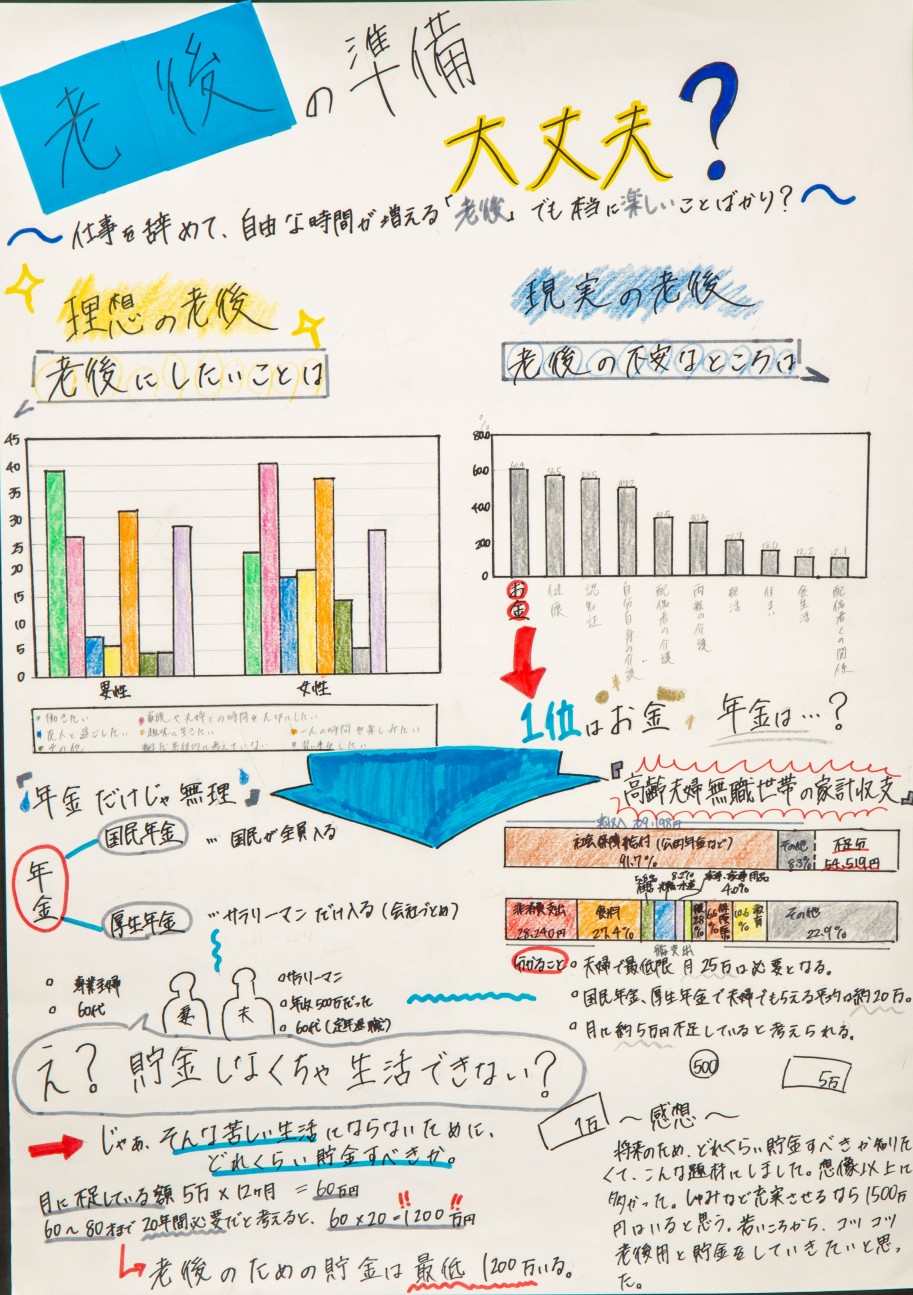 老後の準備
大丈夫?
〜仕事を辞めて、自由な時間が増える「老後」でも本当に楽しいことばかり?〜
理想の老後
老後にしたいことは
45
40
35
30
25
20
15
10
5
0
男性 女性
働きたい 家族や夫婦との時間を大切にしたい
友人と過ごしたい 趣味に生きたい 一人の時間を楽しみたい
その他 まだ具体的に考えていない
現実の老後
老後の不安なところは
%
80.0
60.0
40.0
20.0
0
お金
健康
認知症
自分自身の介護
配偶者の介護
両親の介護
終活
住まい
食生活
配偶者との関係
1位はお金 年金は…?
『年金だけじゃ無理』
年金
国民年金 … 国民が全員入る
厚生年金 … サラリーマンだけ入る(会社づとめ)
専業主婦
60代
妻 夫
サラリーマン
年収500万だった
60代(定年退職)
え? 貯金しなくちゃ生活できない?
『高齢夫婦無職世帯の家計収支』
実収入 209,198円
社会保障給付(公的年金など)
91.7%
その他
8.3%
不足分
54,519円
非消費支出
28,240円
食料
27.4%
4.0%
教育
その他
22.9%
分かること
夫婦で最低限 月25万は必要となる。
国民年金、厚生年金で夫婦でもらえる平均は約20万。
月に約5万円不足していると考えられる。
500
5万
1万
じゃあ、そんな苦しい生活にならないために、
どれくらい貯金すべきか。
月に不足している額 5万×12ヶ月 =60万円
60〜80才まで 20年間必要だと考えると、60×20=1200万円
老後のための貯金は最低1200万いる。
〜感想〜
将来のため、どれくらい貯金すべきか知りた
くて、こんな題材にしました。想像以上に
多かった。しゅみなど充実させるなら1500万
円はいると思う。若いころから、コツコツ
老後用と貯金をしていきたいと思っ
た。